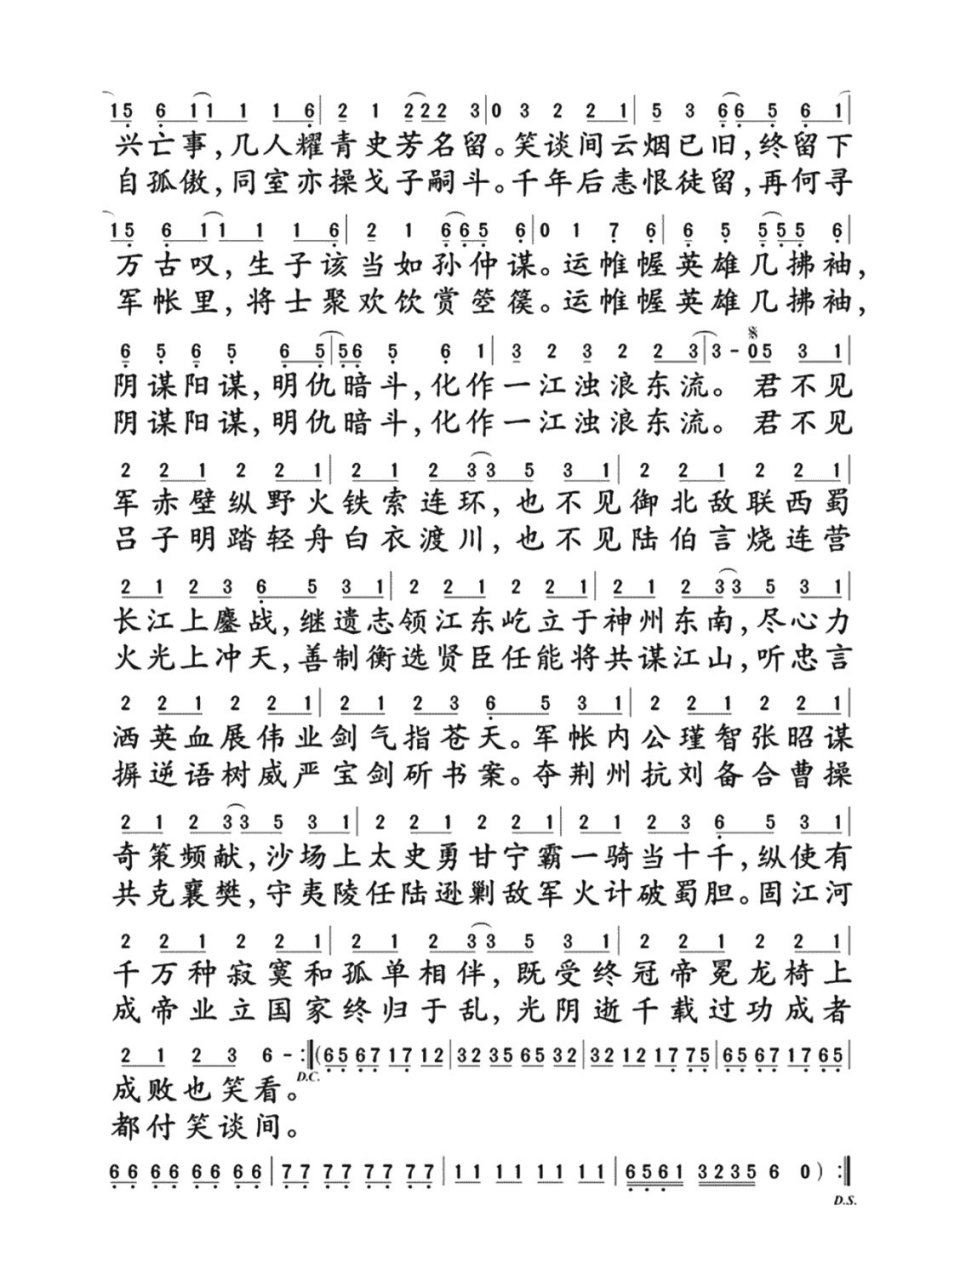 15 6 11 1 1 6 | 2 1 222 3 | 0 3 2 2 1 | 5 3 66 5 6 1
兴亡事，几人耀青史芳名留。笑谈间云烟已旧，终留下
自孤傲，同室亦操戈子嗣斗。千年后恚恨徒留，再何寻
15 6 11 1 1 6 | 2 1 665 6 | 0 1 7 6 | 6 5 555 6
万古叹，生子该当如孙仲谋。运帷幄英雄几拂袖，
军帐里，将士聚欢饮赏箜篌。运帷幄英雄几拂袖，
6 5 6 5 6 5 | 56 5 6 1 | 3 2 3 2 2 3 | 3 - 05 3 1 |
阴谋阳谋，明仇暗斗，化作一江浊浪东流。君不见
阴谋阳谋，明仇暗斗，化作一江浊浪东流。君不见
2 2 1 2 2 1 | 2 1 2 33 5 3 1 | 2 2 1 2 2 1 |
军赤壁纵野火铁索连环，也不见御北敌联西蜀
吕子明踏轻舟白衣渡川，也不见陆伯言烧连营
2 1 2 3 6 5 3 1 | 2 2 1 2 2 1 | 2 1 2 33 5 3 1 |
长江上鏖战，继遗志领江东屹立于神州东南，尽心力
火光上冲天，善制衡选贤臣任能将共谋江山，听忠言
2 2 1 2 2 1 | 2 1 2 3 6 5 3 1 | 2 2 1 2 2 1 |
洒英血展伟业剑气指苍天。军帐内公瑾智张昭谋
摒逆语树威严宝剑斫书案。夺荆州抗刘备合曹操
2 1 2 33 5 3 1 | 2 2 1 2 2 1 | 2 1 2 3 6 5 3 1 |
奇策频献，沙场上太史勇甘宁霸一骑当十千，纵使有
共克襄樊，守夷陵任陆逊剿敌军火计破蜀胆。固江河
2 2 1 2 2 1 | 2 1 2 33 5 3 1 | 2 2 1 2 2 1 |
千万种寂寞和孤单相伴，既受终冠帝冕龙椅上
成帝业立国家终归于乱，光阴逝千载过功成者
2 1 2 3 6 - :‖ (65 67 17 12 | 32 35 65 32 | 32 12 17 75 | 65 67 17 65 |
D.C.
成败也笑看。
都付笑谈间。
66 66 66 66 | 77 77 77 77 | 11 11 11 11 | 6561 3235 6 0) :‖
D.S.